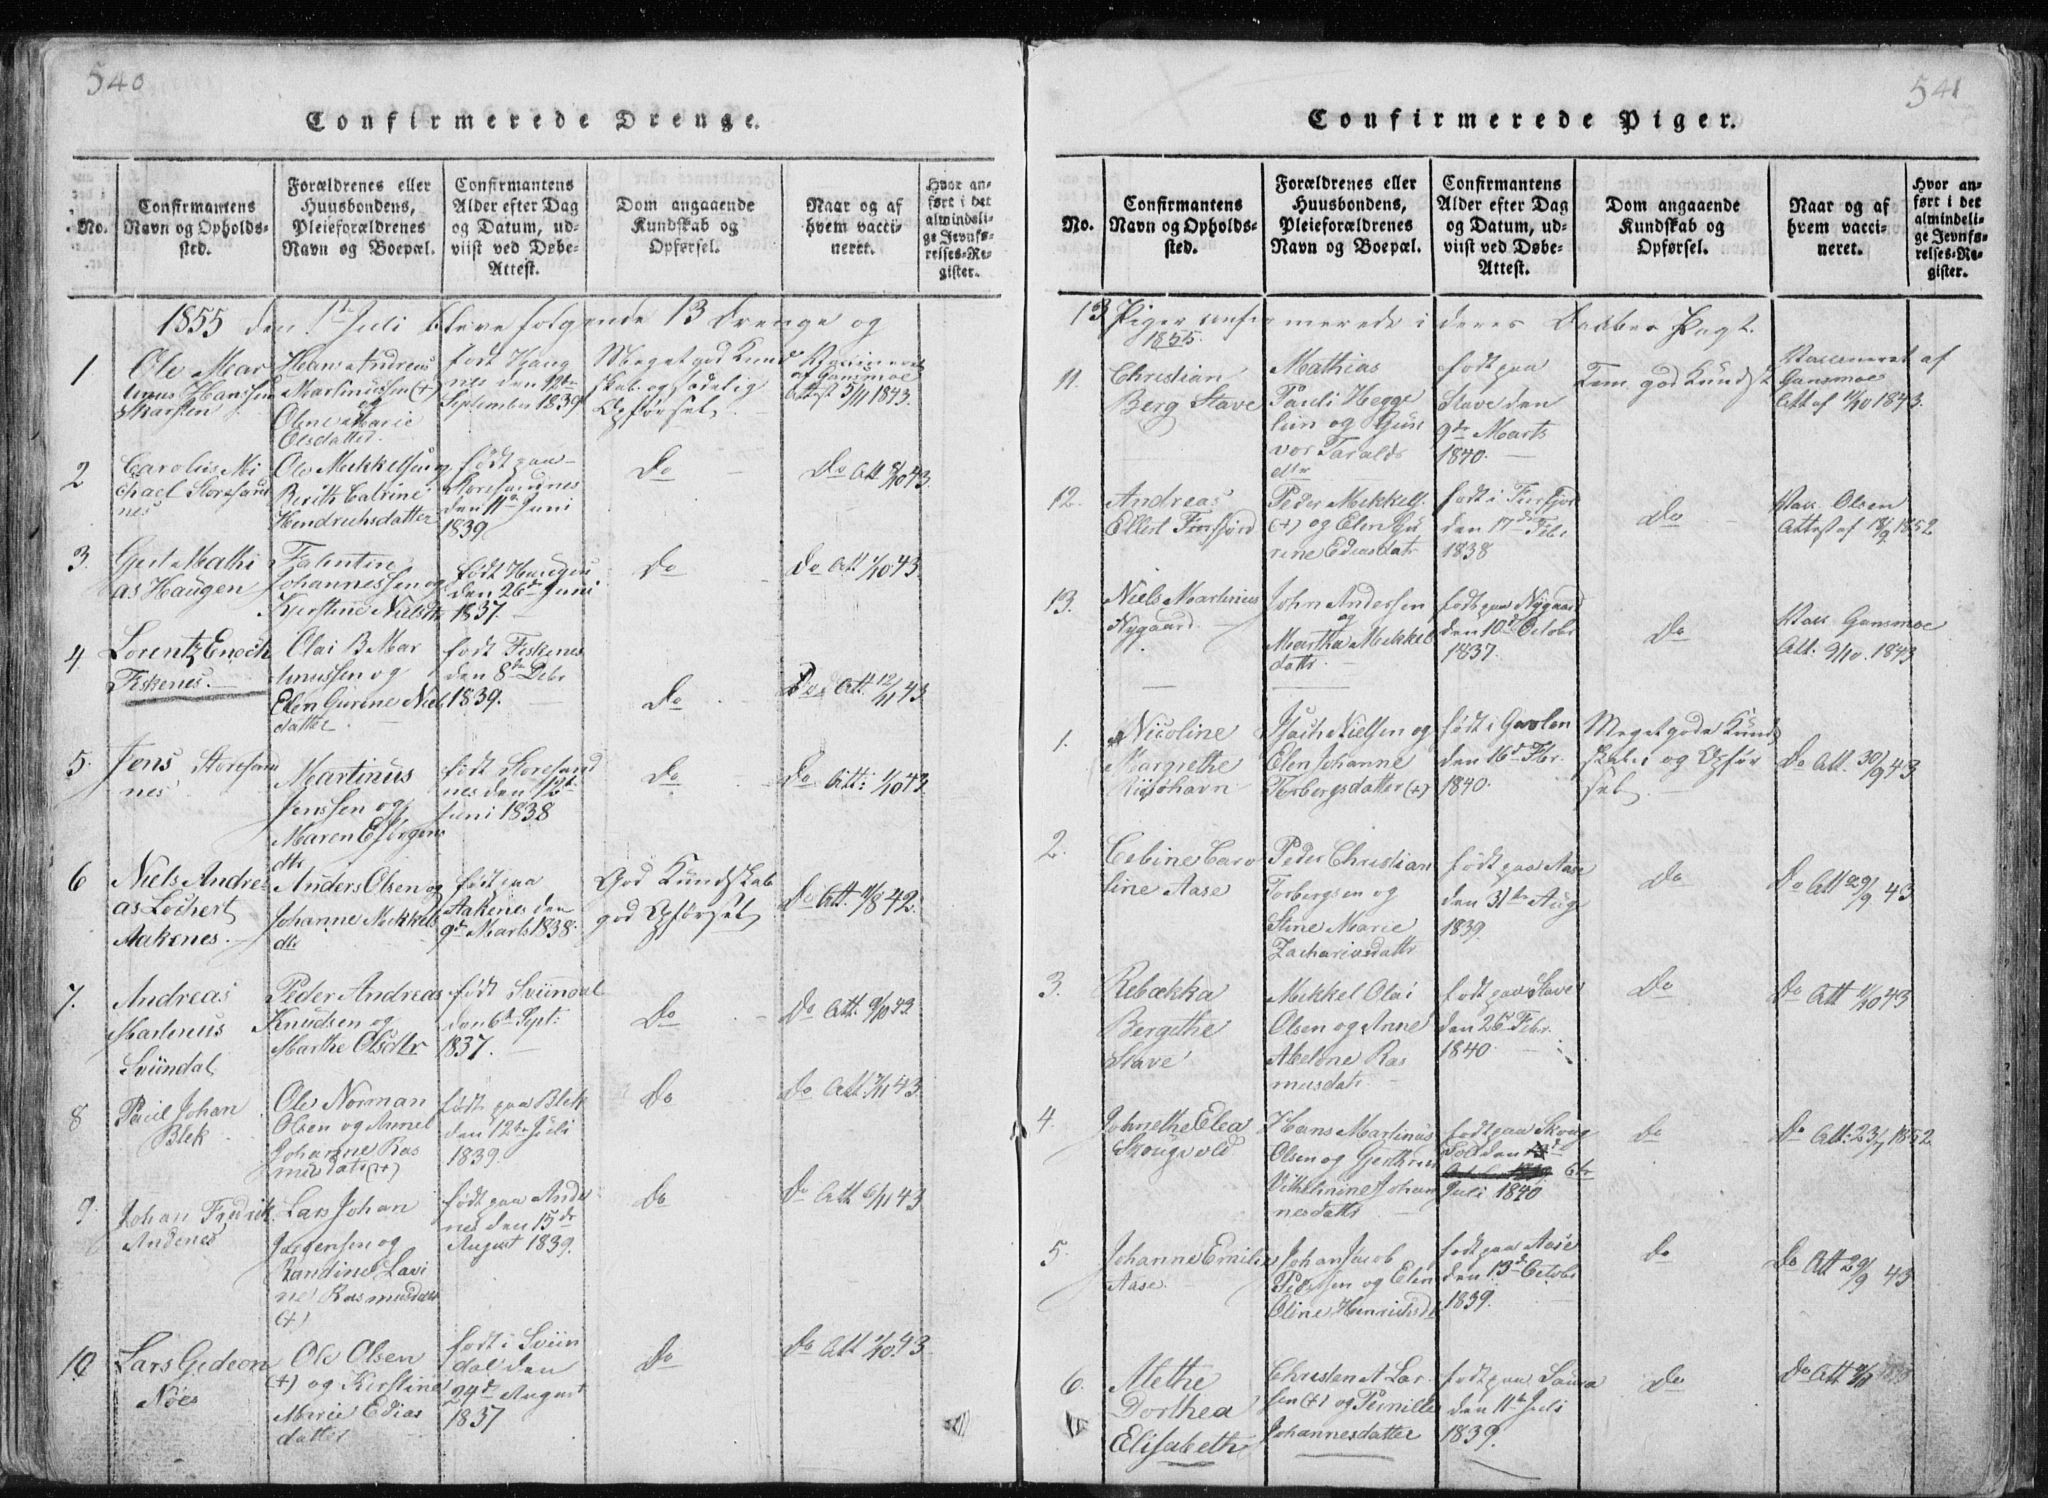 540
Confirmerede Drenge.
No.
Confirmantens
Navn og Opholds-
sted.
Forældrenes eller
Huusbondens,
Pleieforældrenes
Navn og Boepæl.
Confirmantens
Alder efter Dag
og Datum, ud-
viist ved Døbe-
Attest.
Dom angaaende
Kundskab og
Opførsel.
Naar og af
hvem vacci-
neret.
Hvor an-
ført i det
almindeli-
ge Jevnfø-
relses-Re-
gister.
1855 den 1ste Juli bleve følgende 13 Drenge og
1
Ole Mar
tinus Hanssen
Hans Andreas
Martinussen (+)
og
Oline Marie
Olsdatter.
født Haug
nes den 12te
September 1839
Meget god Kund
skab og sædelig
Opførsel.
af Gansmoe
Attest 5/11 1843.
2
Carolius Mi
chael Storesand
nes
Ole Mekkelsen og
Berith Catrine
Hendrichsdatter
født paa
Storesandnes
den 11te Juni
1839
Do
Do Att 8/10 43.
3.
Gjert Mathi
as Haugen
Falentin
Johannessen og
Kjerstine Nielsdtr
født Haugen
den 26de Juni
1837.
Do
Do Att 1/10 43.
4
Lorentz Enoch
Fiskenes.
Olai B Mar
tinussen og
Elen Gurine Niels
datter
født Fiskenes
den 8de Debr
1839.
Do
Do Att. 12/11 43.
5.
Jens Storesand
nes
Martinus
Jenssen og
Maren E Jørgens
dtr
født Storesand
nes den
Juni 1838
Do
Do Att: 1/10 43.
6
Niels Andre
as Lochert
Aakenes.
Anders Olsen og
Johanne Mekkels
dtr
født paa
Aakenes den
9de Marts 1838.
God Kundskab
god Opførsel
Do Att. 11/8 42.
7.
Andreas
Martinus
Sviindal
Peder Andreas
Knudsen og
Marthe Olsdtr
født Sviindal
den 6te Sept:
1837.
Do
Do Att. 9/10 43
8
Paul Johan
Blek
Ole Norman
Olsen og Anne
Johanne Ras
musdatr (+)
født paa Blek
den 12te Juli
1839.
Do
Do Att. 7/11 43.
9.
Johan Fredrik
Andenes
Lars Johan
Jørgensen og
Randine Lavi
ne Rasmusdatr
(+)
født paa Ande
nes den 15de
August 1839.
Do
Do Att 6/11 43
10
Lars Gedeon
Nöss
Ole Olsen
(+) og Kirstine
Marie Edias
datter
født i Sviin
dal den
24de August
1837
Do
Do Att 1/10 43.
541
Confirmerede Piger.
No.
Confirmantens
Navn og Opholds-
sted.
Forældrenes eller
Huusbondens,
Pleieforældrenes
Navn og Boepæl.
Confirmantens
Alder efter Dag
og Datum, ud-
viist ved Døbe-
Attest.
Dom angaaende
Kundskab og
Opførsel.
Naar og af
hvem vacci-
neret.
Hvor an-
ført i det
almindeli-
ge Jevnfø-
relses-Re-
gister.
13 Piger confirmerede i deres Daabes Pagt.
1855.
11.
Christian
Berg Stave
Mathias
Pauli Hegge
lund og Gun
vor Taralds
dtr
født paa
Stave den
9de Marts
1840.
Tem. god Kundsk
Vaccineret af
Gansmoe
Att af 11/10 1843.
12.
Andreas
Ellert Forfjord
Peder Mekkels.
(+) og Elen Gu
rine Ediasdatr
født i Forfjord
den 17de Febr
1838
Do
Vacc. Olsen
Attest af 18/9 1852
13.
Niels Martinus
Nygaard.
John Andersen
og
Martha Mekkel
datr.
født paa Nygaard
den 10de Octobr
1837.
Do
Vacc. Gansmoe
Att. 9/10. 1843
1.
Nicoline
Margrethe
Isach Nielsen og
Elen Johanne
Torbergsdatter (+)
født i Gavlen
den 16de Fbr.
1840.
Meget gode Kund
skaber og Opfør
sel.
Do Att. 30/9 43
2.
Cebine Caro
line Aase
Peder Christian
Torbergsen og
Stine Marie
Zachariasdatr
født paa Aase
den 31te Aug
1839.
Do
Do Att 29/9 43
3.
Rebækka
Bergithe
Stave
Mekkel Olai
Olsen og Anne
Abelone Ras
musdatr
født paa Stave
den 26 Febr.
1840.
Do
Do Att 1/10 43
4.
Johnethe Elea
Skougvold
Hans Martinus
Olsen og Gjerthrud
Vilhelmine Johan
nesdatr
født paa Skoug
vold den
6te
Juli 1840
Do
Do Att. 23/7 1852
5.
Johanne Emilie
Aase
Johan Jacob
Pedersen og Elen
Oline Henrichsdtr
født paa Aase
den 13de Octobr
1839.
Do
Do Att 29/9 43
6.
Methe
Dorthea
Elisabeth
Christen A Lar
sen (+) og Pernille
Johannesdatter
født paa Saura
den 11te Juli
1839.
Do
Do Att